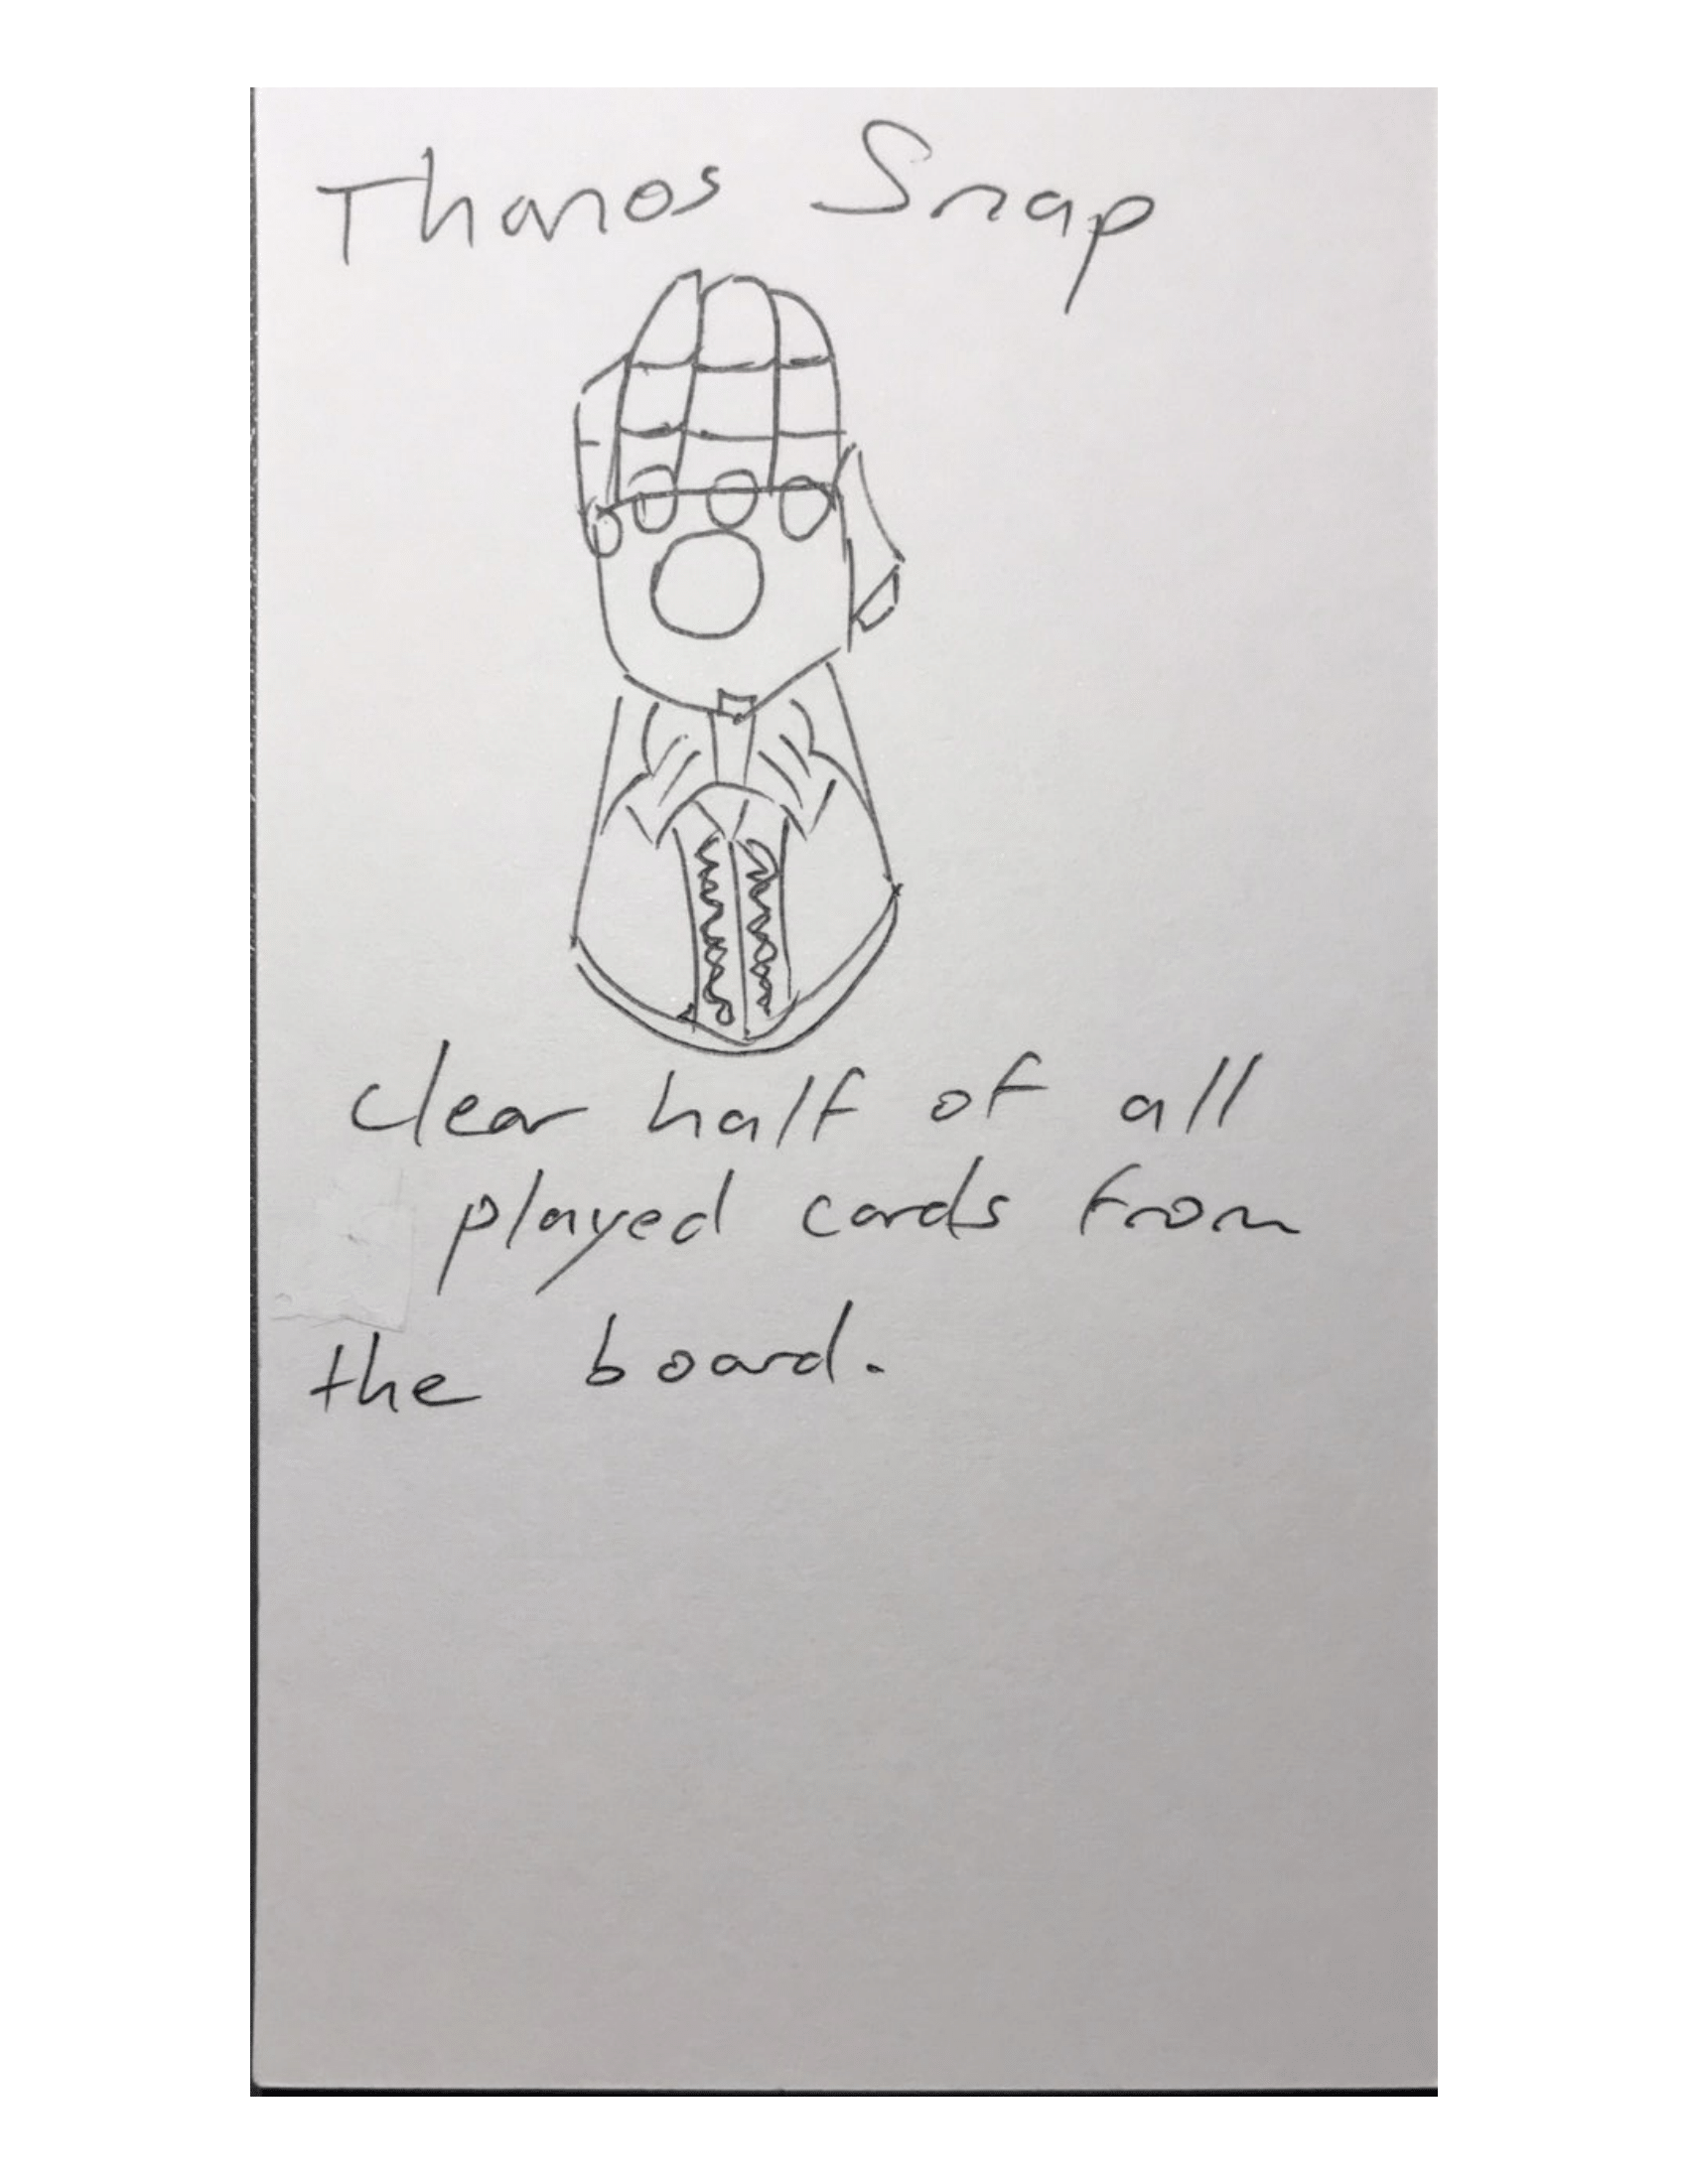 Thanos Snap
clear half of all
played cards from
the board.